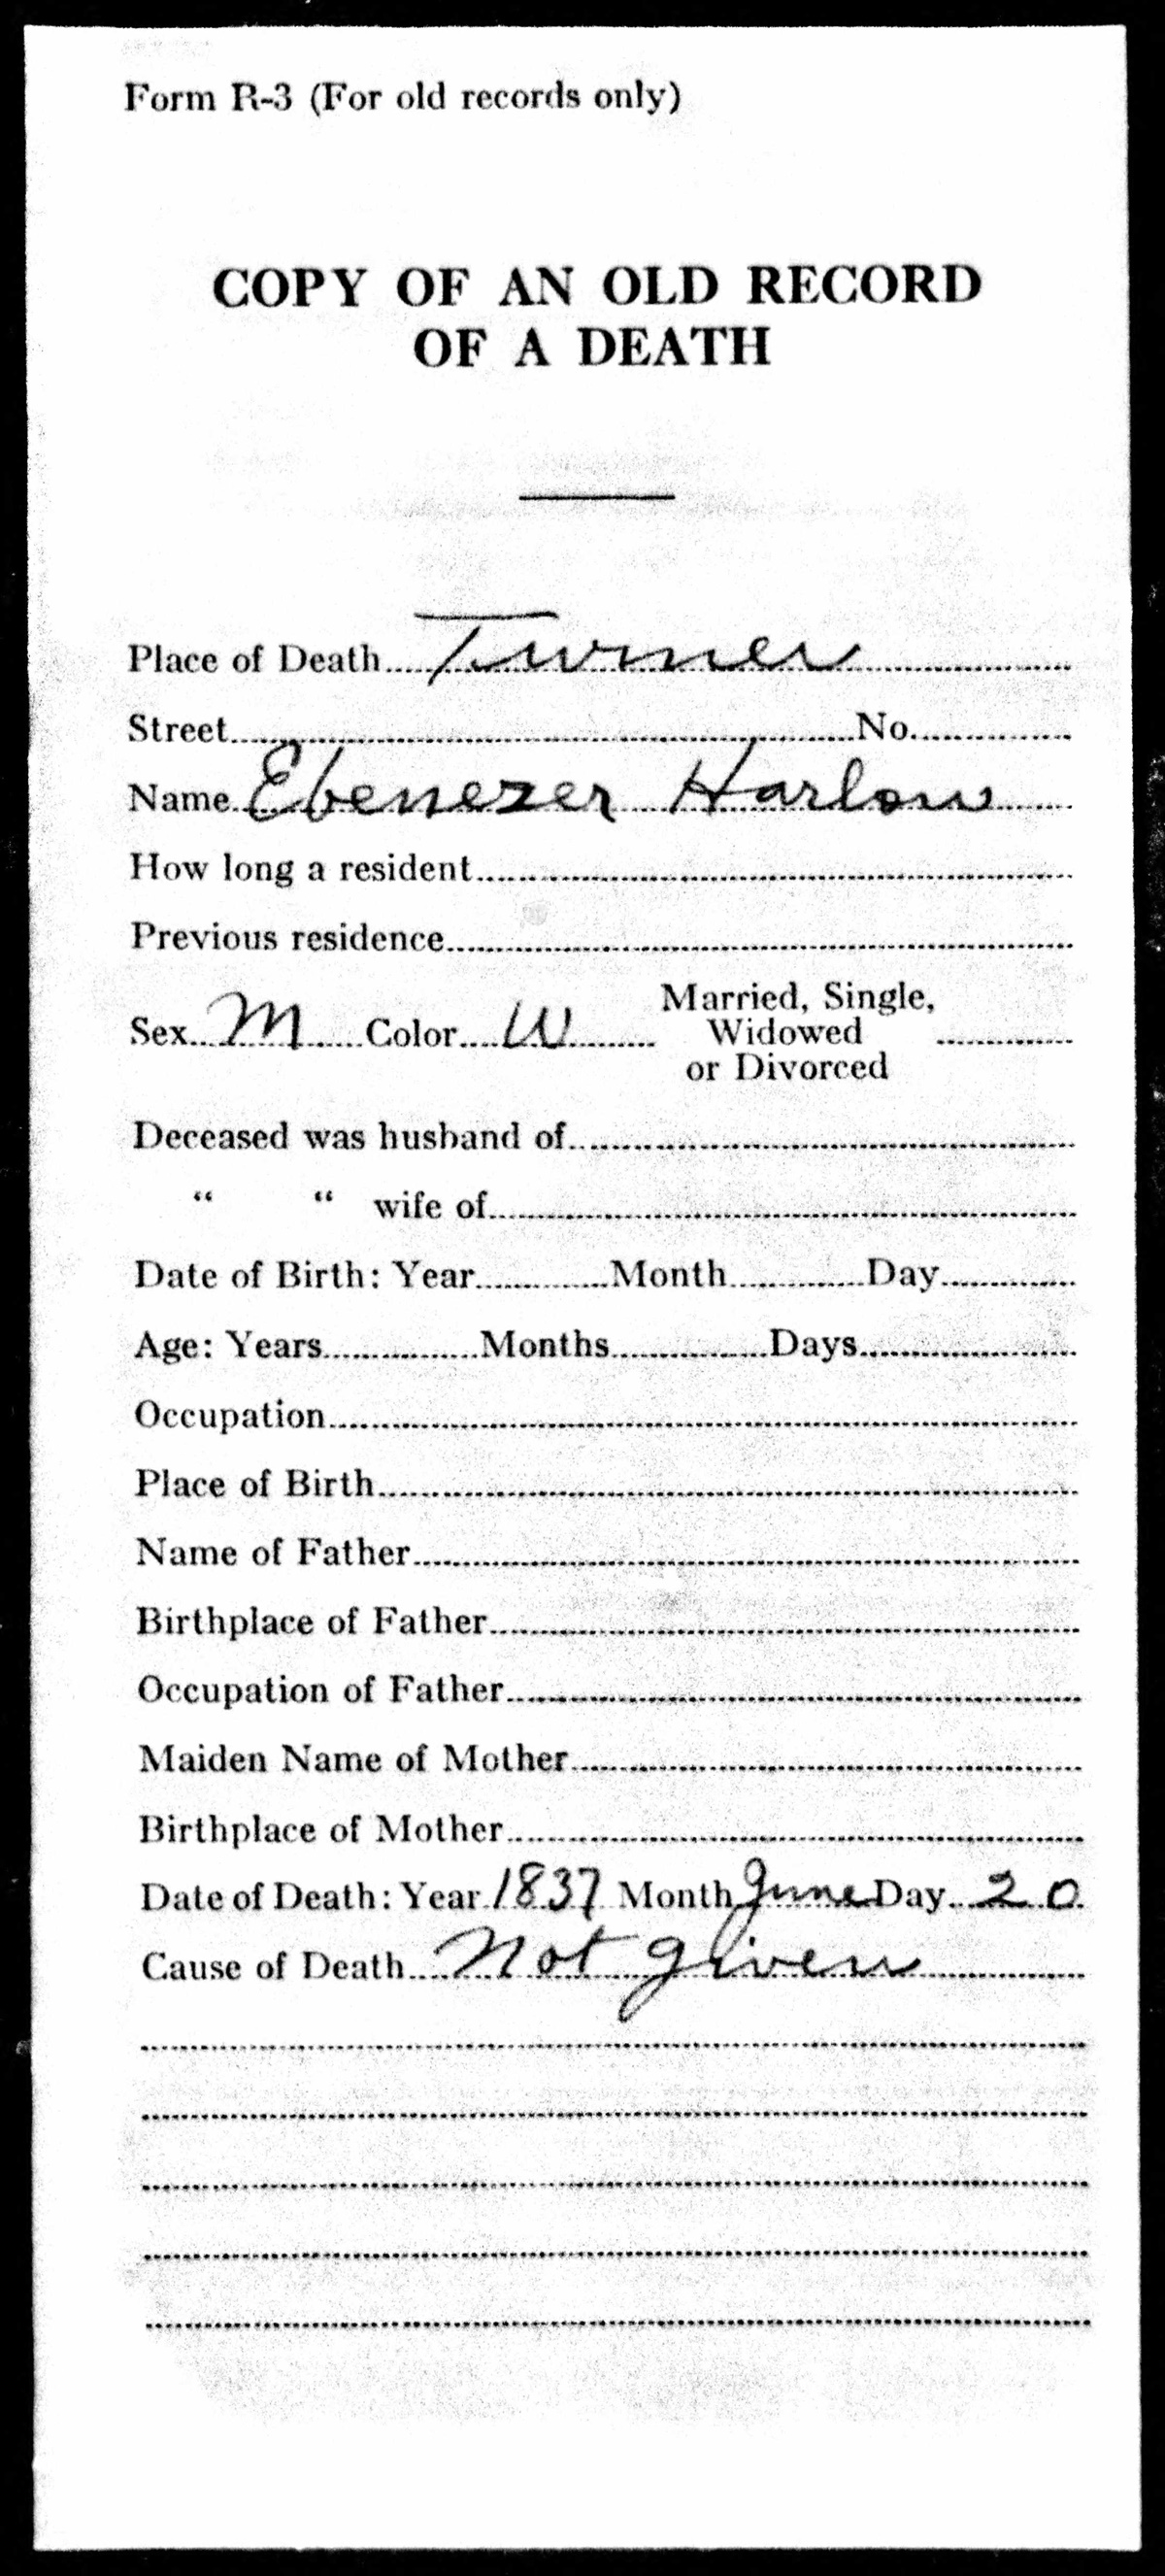 Form R-3 (For old records only)
COPY OF AN OLD RECORD
OF A DEATH
Place of Death Turner
Street No.
Name Ebenezer Harlow
How long a resident
Previous residence
Sex M Color W Married, Single,
Widowed
or Divorced
Deceased was husband of
“ “ wife of
Date of Birth: Year Month Day
Age: Years Months Days
Occupation
Place of Birth
Name of Father
Birthplace of Father
Occupation of Father
Maiden Name of Mother
Birthplace of Mother
Date of Death: Year 1837 Month June Day 20
Cause of Death Not given